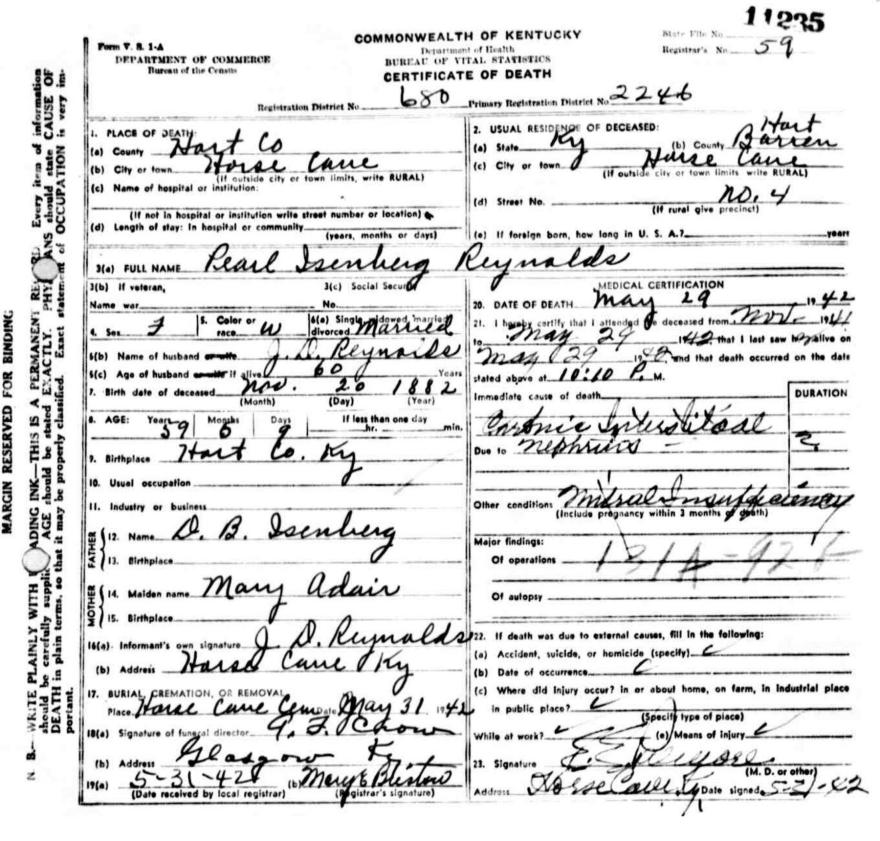 11235
Form V. S. 1-A
DEPARTMENT OF COMMERCE
Bureau of the Census
COMMONWEALTH OF KENTUCKY
Department of Health
BUREAU OF VITAL STATISTICS
CERTIFICATE OF DEATH
State File No.
Registrar's No. 59
Registration District No. 680 Primary Registration District No. 2246
1. PLACE OF DEATH:
(a) County Hart Co
(b) City or town Horse Cave
(If outside city or town limits, write RURAL)
(c) Name of hospital or institution:
(If not in hospital or institution write street number or location)
(d) Length of stay: In hospital or community
(years, months or days)
2. USUAL RESIDENCE OF DECEASED:
Hart
(a) State Ky (b) County Barren
(c) City or town Horse Cave
(If outside city or town limits, write RURAL)
(d) Street No. No. 4
(If rural give precinct)
(e) If foreign born, how long in U. S. A.? years
3(a) FULL NAME Pearl Isenberg Reynolds
3(b) If veteran, 3(c) Social Secur
Name war No.
4. Sex F 5. Color or race. W 6(a) Single, widowed, married, divorced Married
6(b) Name of husband or wife J. D. Reynolds
6(c) Age of husband or wife if alive 60 Years
7. Birth date of deceased Nov. 20 1882
(Month) (Day) (Year)
8. AGE: Years Months Days If less than one day
59 6 9 hr. min.
9. Birthplace Hart Co. Ky
10. Usual occupation
11. Industry or business
FATHER
12. Name D. B. Isenberg
13. Birthplace
MOTHER
14. Maiden name Mary Adair
15. Birthplace
16(a). Informant's own signature J. D. Reynolds
(b) Address Horse Cave Ky
17. BURIAL, CREMATION, OR REMOVAL
Place Horse Cave Cem Date May 31 1942
18(a) Signature of funeral director Crow
(b) Address Glasgow Ky
19(a) 5-31-42 (b) Mary E Bristow
(Date received by local registrar) (Registrar's signature)
MEDICAL CERTIFICATION
20. DATE OF DEATH May 29 1942
21. I hereby certify that I attended the deceased from Nov- 1941
to May 29 1942 that I last saw her alive on
May 29 1942 and that death occurred on the date
stated above at 10:10 P. M.
Immediate cause of death DURATION
Chronic Interstitial
Due to nephritis
Other conditions Mitral Insufficiency
(Include pregnancy within 3 months of death)
Major findings:
Of operations 131A-92
Of autopsy
22. If death was due to external causes, fill in the following:
(a) Accident, suicide, or homicide (specify)
(b) Date of occurrence
(c) Where did injury occur? In or about home, on farm, in industrial place
in public place?
(Specify type of place)
While at work? (e) Means of injury
23. Signature
(M. D. or other)
Address Horse Cave Ky Date signed 5-31-42
MARGIN RESERVED FOR BINDING
N. B.—WRITE PLAINLY WITH ADING INK—THIS IS A PERMANENT RE RD. Every item of information
should be carefully supplie AGE should be stated EXACTLY. PHY ANS should state CAUSE OF
DEATH in plain terms, so that it may be properly classified. Exact statement of OCCUPATION is very im-
portant.